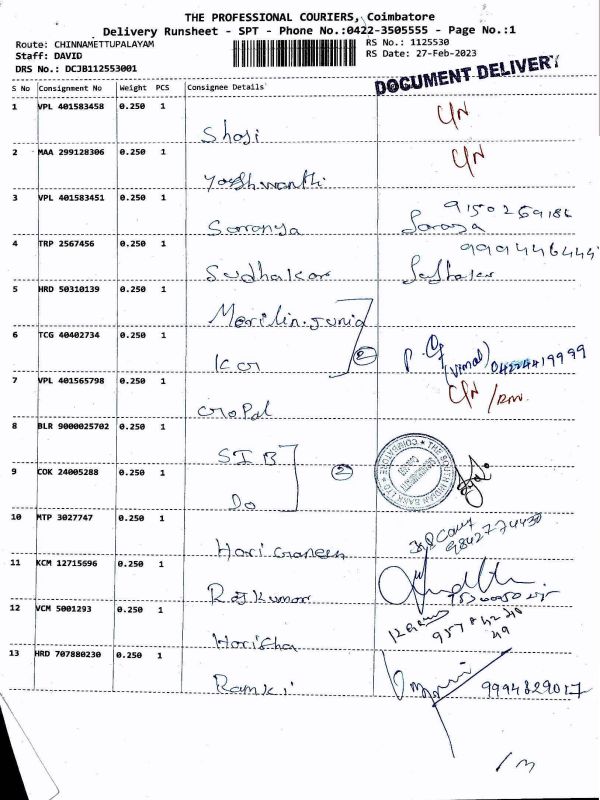 THE PROFESSIONAL COURIERS, Coimbatore
Delivery Runsheet - SPT - Phone No.:0422-3505555 - Page No.:1
Route: CHINNAMETTUPALAYAM
Staff: DAVID
DRS No.: DCJB112553001
RS No.: 1125530
RS Date: 27-Feb-2023
DOCUMENT DELIVERY
S No Consignment No Weight PCS Consignee Details
1 VPL 401583458 0.250 1 Shaji C/N
2 MAA 299128306 0.250 1 Yashwanthi C/N
3 VPL 401583451 0.250 1 Saranya 9150269186
4 TRP 2567456 0.250 1 Sudhakar 9994446444
5 HRD 50310139 0.250 1 Merilin.junia
6 TCG 40402734 0.250 1 KCT 2 (Vimal) 04224419999
7 VPL 401565798 0.250 1 Gopal C/N
8 BLR 9000025702 0.250 1 SIB
THE SOUTH INDIAN BANK LTD COIMBATORE
9 COK 24005288 0.250 1 Do 2
10 MTP 3027747 0.250 1 Hari Ganesh 9842774430
11 KCM 12715696 0.250 1 Rajkumar
12 VCM 5001293 0.250 1 Harisha
13 HRD 707880230 0.250 1 Ramki 9994829017